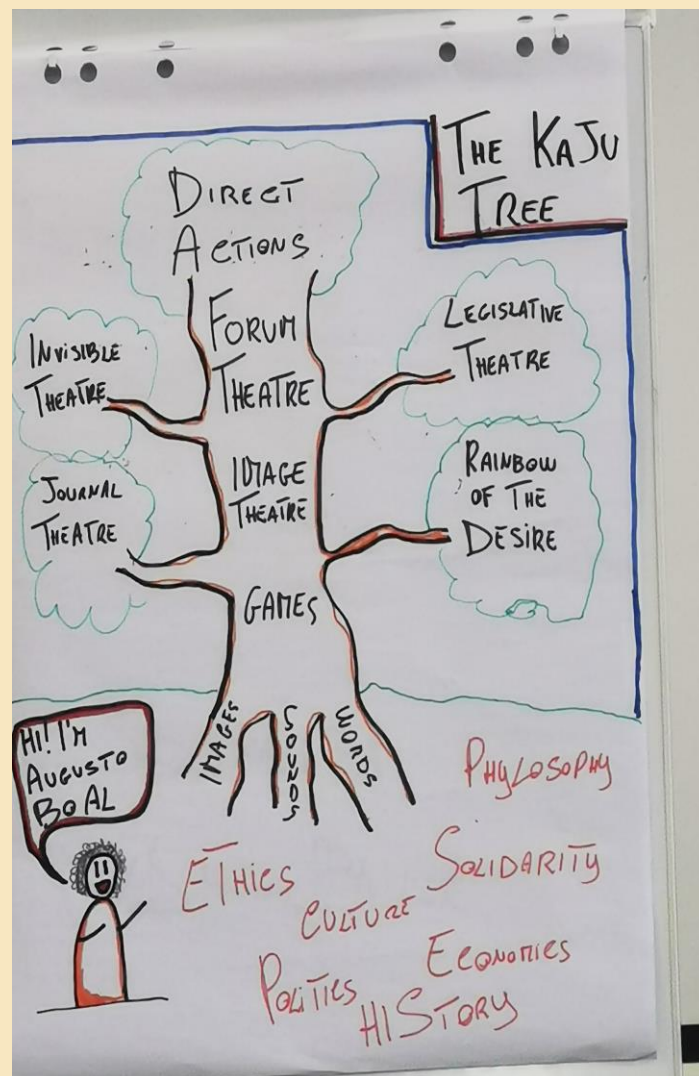 THE KAJU
TREE
DIRECT
ACTIONS
FORUM
THEATRE
INVISIBLE
THEATRE
LEGISLATIVE
THEATRE
IMAGE
THEATRE
JOURNAL
THEATRE
RAINBOW
OF THE
DESIRE
GAMES
IMAGES
SOUNDS
WORDS
HI! I'M
AUGUSTO
BOAL
PHYLOSOPHY
ETHICS
SOLIDARITY
CULTURE
ECONOMICS
POLITICS
HISTORY